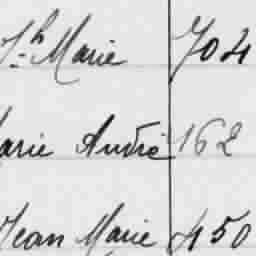 J.h Marie 704
Marie André 162
Jean Marie 450